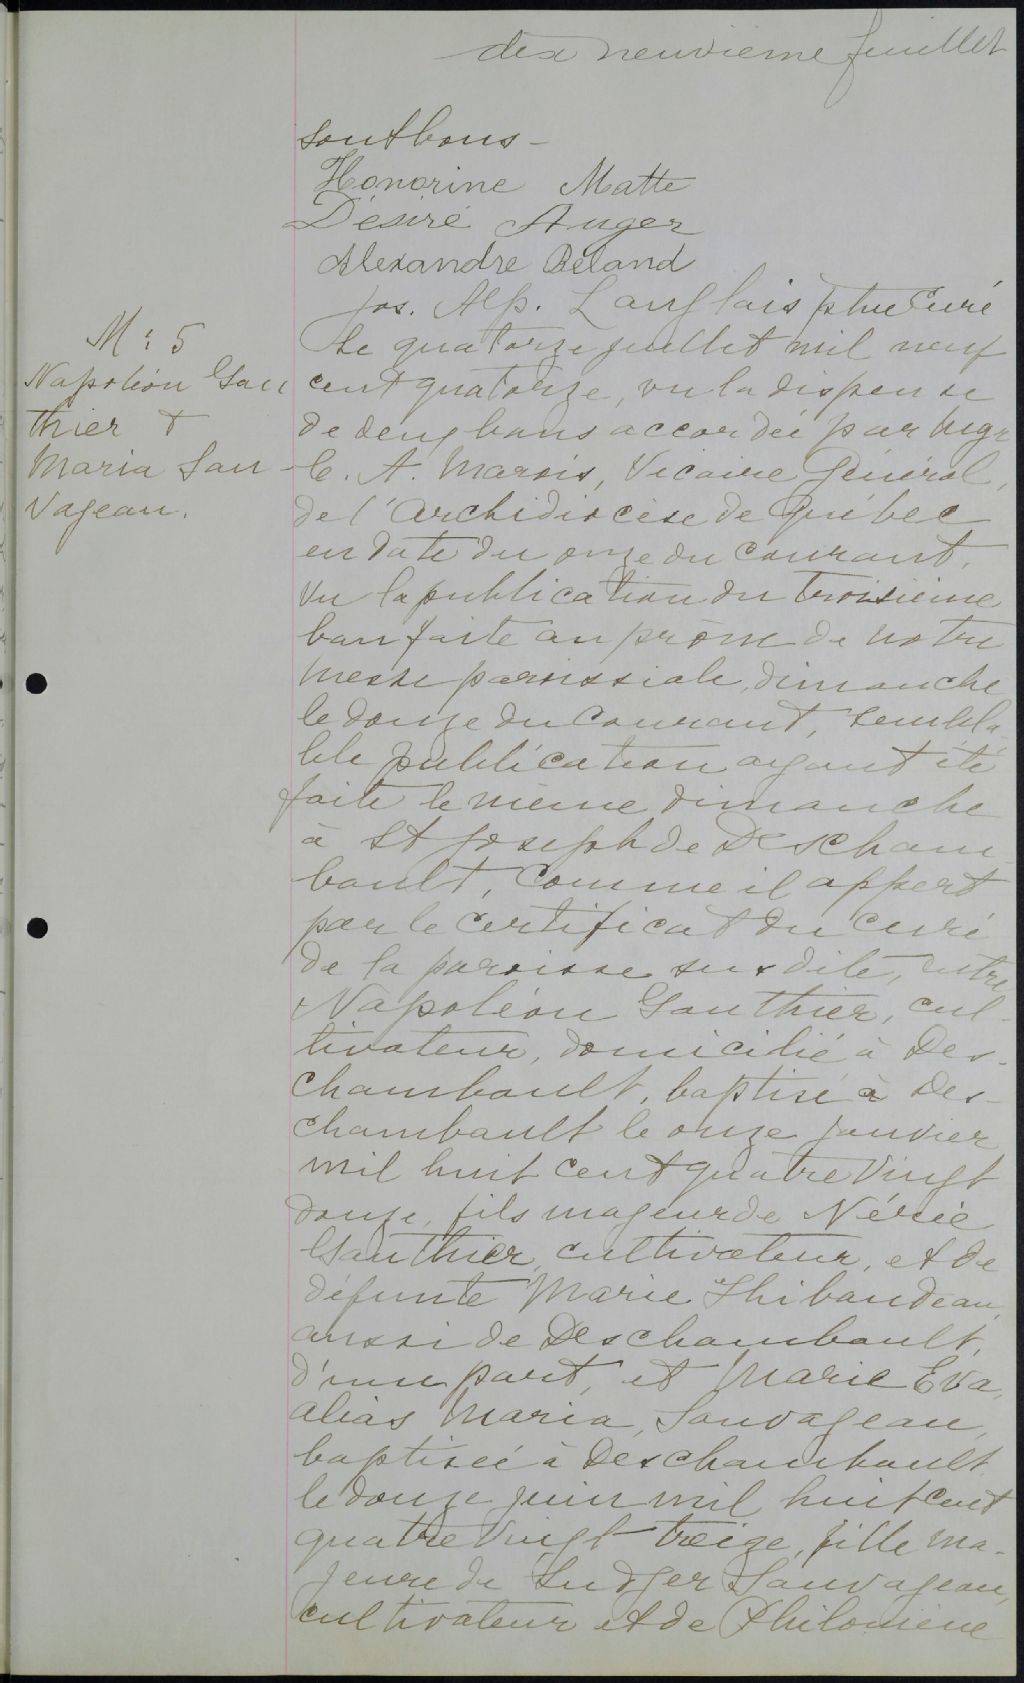 dix neuvième feuillet
sont bons -
Honorine Matte
Désiré Auger
Alexandre Béland
Jos. Alp. Langlais ptre Curé
M : 5
Napoléon Gau
thier &
Maria Sau
vageau.
Le quatorze juillet mil neuf
cent quatorze, vu la dispense
de deux bans accordée par Mgr
C. A. Marois, Vicaire Général,
de l'Archidiocèse de Québec
en date du onze du courant,
vu la publication du troisième
ban faite au prône de notre
messe paroissiale, dimanche
le douze du courant, sembla-
ble publication ayant été
faite le même dimanche
à St Joseph de Descham-
bault, comme il appert
par le certificat du curé
de la paroisse susdite, entre
Napoléon Gauthier, cul-
tivateur, domicilié à Des-
chambault, baptisé à Des-
chambault le onze janvier
mil huit cent quatre vingt
douze, fils majeur de Nérée
Gauthier, cultivateur, et de
défunte Marie Thibaudeau,
aussi de Deschambault,
d'une part, et Marie Eva,
alias Maria, Sauvageau,
baptisée à Deschambault
le douze juin mil huit cent
quatre vingt treize, fille ma-
jeure de Ludger Sauvageau,
cultivateur et de Philomène